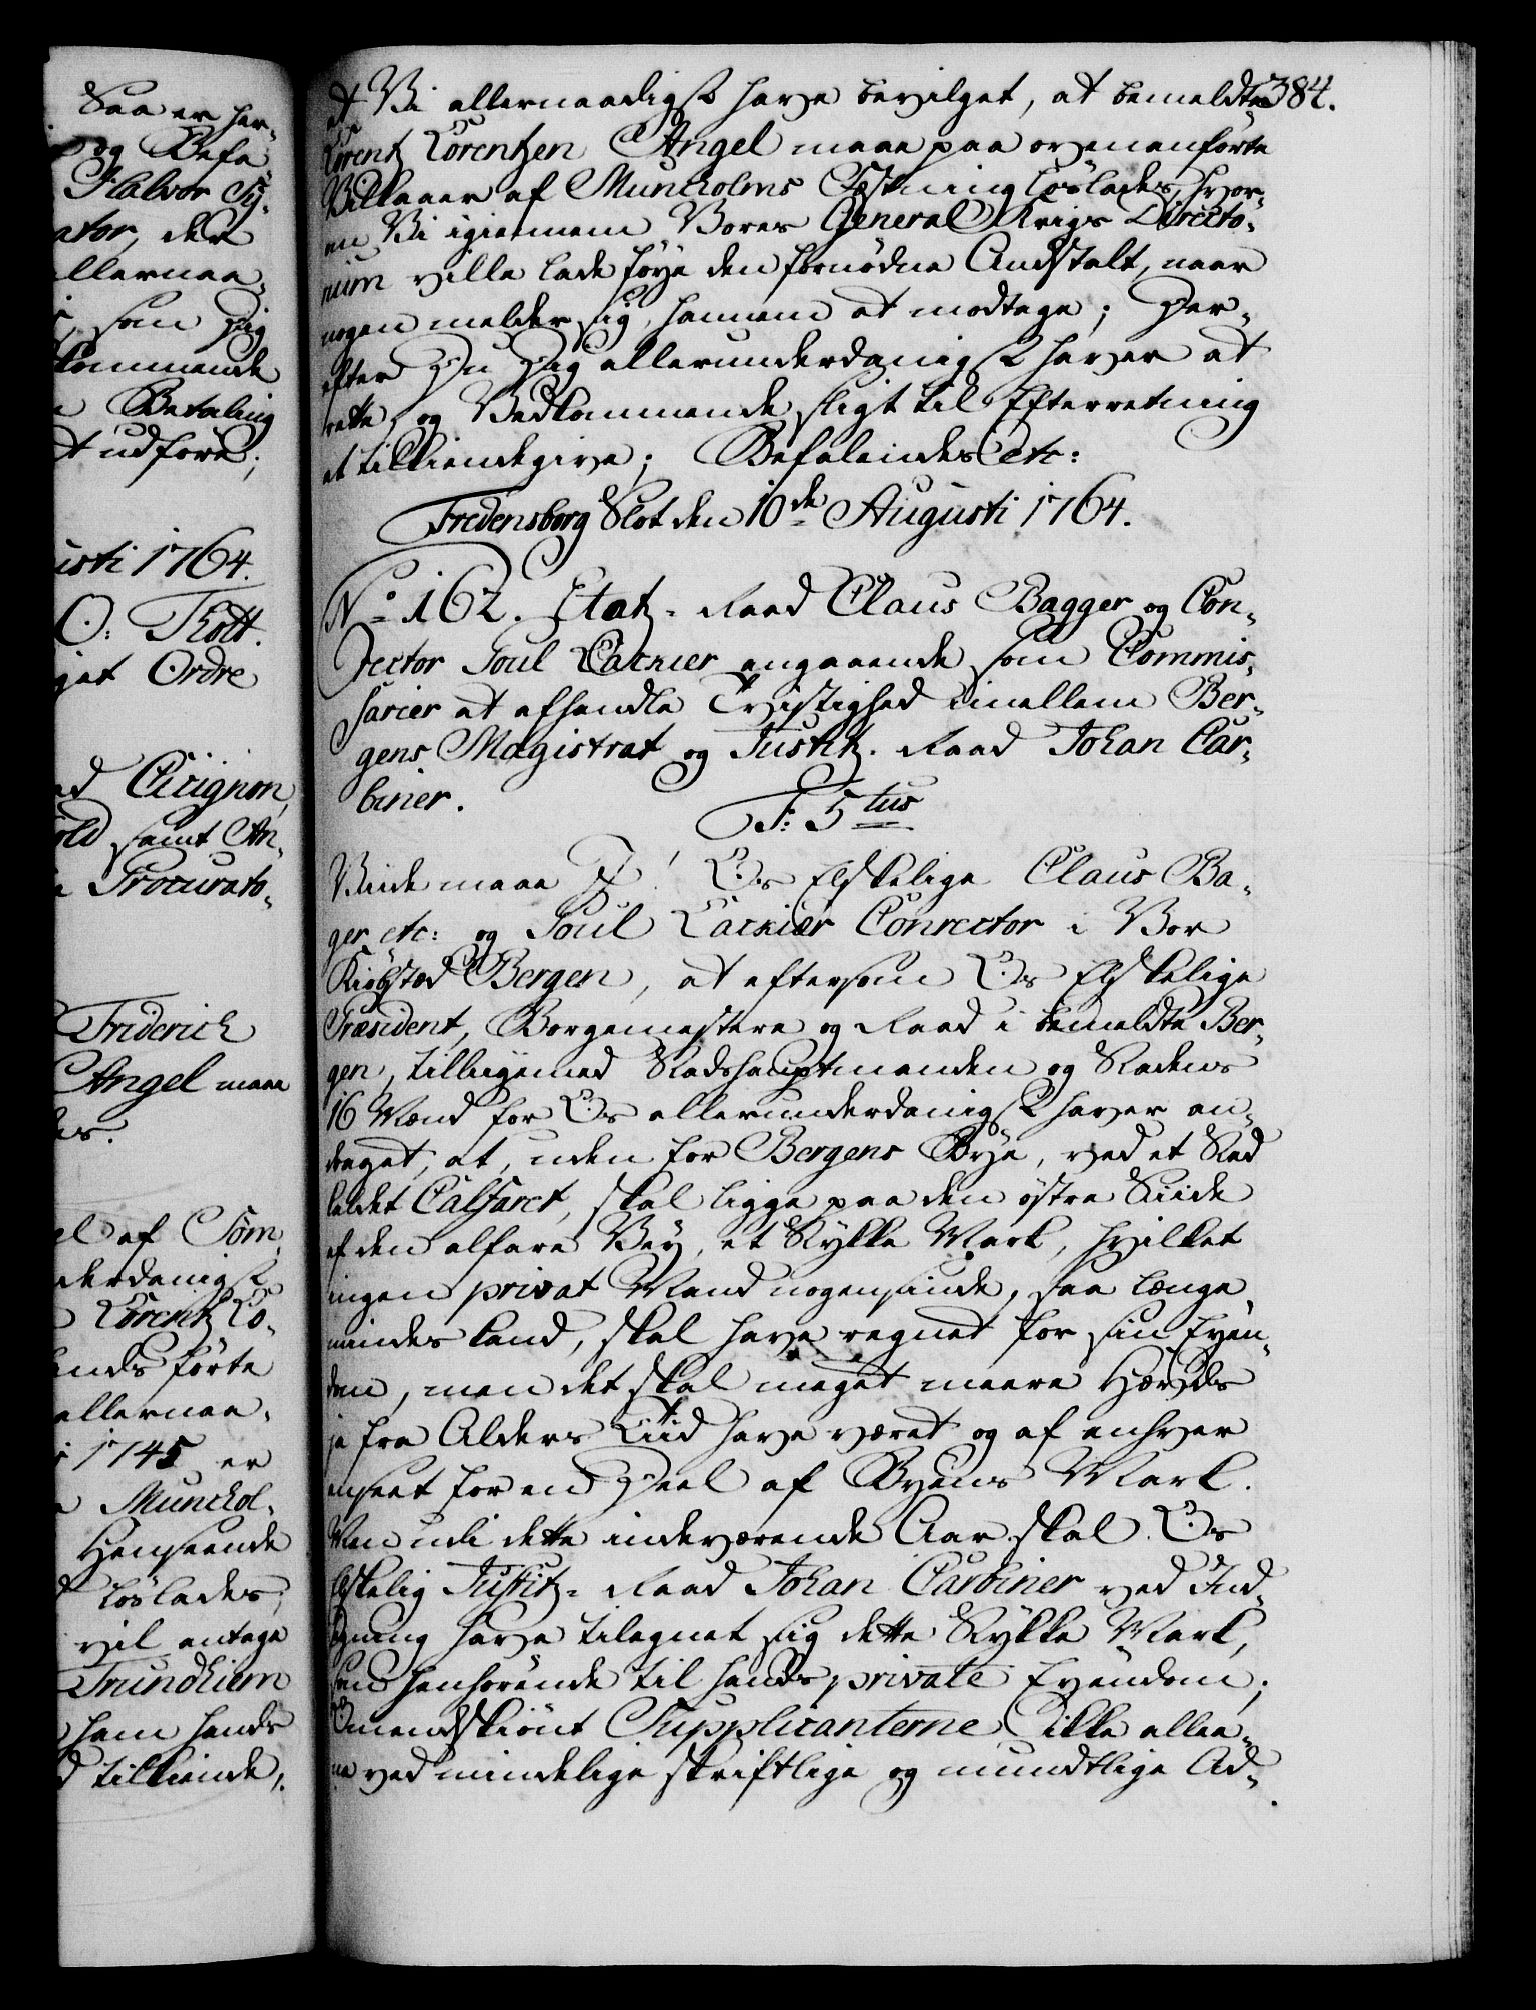 Saa er her-
og Befa
Halvor Ty-
ator, der
llernaa-
som Dig
kommende
Betaling
t udføre;
usti 1764.
O: Thott.
get Ordre
ad Cicignon,
old samt An-
Procurato-
Friderich
Angel maae
es.
el af Tom
derdanigst
Lorentz Lo-
ands førte
allernaa-
i 1745 er
Munckol-
Henseende
løslades;
vil antage
Trundhiem
ham hands
d tilkiende,
384.
at Vi allernaadigst have bevilget, at bemeldte
Lorentz Lorentzen Angel maae paa ovenanførte
Vilkaar af Munckolms Fæstning løslades, hvor-
om Vi igiennem Vores General Krigs Directo-
rium ville lade føye den fornødne Andstalt, naar
nogen melder sig, hannem at modtage; Der-
efter Du Dig allerunderdanigst haver at
rette, og Vedkommende sligt til Efterretning
at tilkiendegive; Befalendes etc:
Fredensborg Slot den 10de Augusti 1764.
No 162. Etatz-Raad Claus Bagger og Con-
rector Poul Lackier angaaende som Commis-
sarier at afhandle Tvistighed imellem Ber-
gens Magistrat og Justitz-Raad Johan Gar-
biner.
F: 5tus
Viide maae I! Os Elskelige Claus Ba-
ger etc: og Poul Lackiær Conrector i Vor
Kiøbstæd Bergen, at eftersom Os Elskelige
Præsident, Borgemestere og Raad i bemeldte Ber-
gen, tilligemed Stadshauptmanden og Stadens
16 Mænd for Os allerunderdanigst haver an-
draget, at, uden for Bergens Bye, ved et Sted
kaldet Calfaret, skal ligge paa den østre Siide
af den alfare Vey, et Stykke Mark, hvilket
ingen privat Mand nogensinde, saa længe
mindes kand, skal have regnet for sin Eyen-
dom, men det skal meget meere Hævds
ja fra Alders Tiid have været og af enhver
anseet for en Deel af Byens Mark.
Men udi dette indeværende Aar skal Os
Elskelig Justitz-Raad Johan Garbiner ved Ind-
have tilegnet sig dette Stykke Mark,
som henhørende til hands private Eyendom;
Omendskiønt Supplicanterne ikke allee-
ne ved mindelige skriftlige og mundtlige Ad-